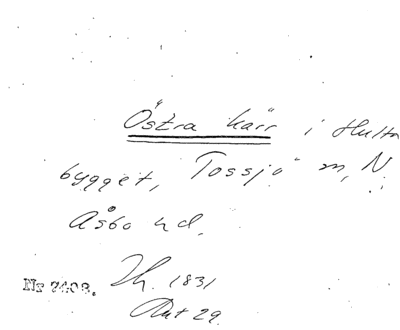 Östra kärr i Hulta
bygget, Tossjö m, N.
Åsbo hd.
Nr 7408. Th. 1831
Ant 29.